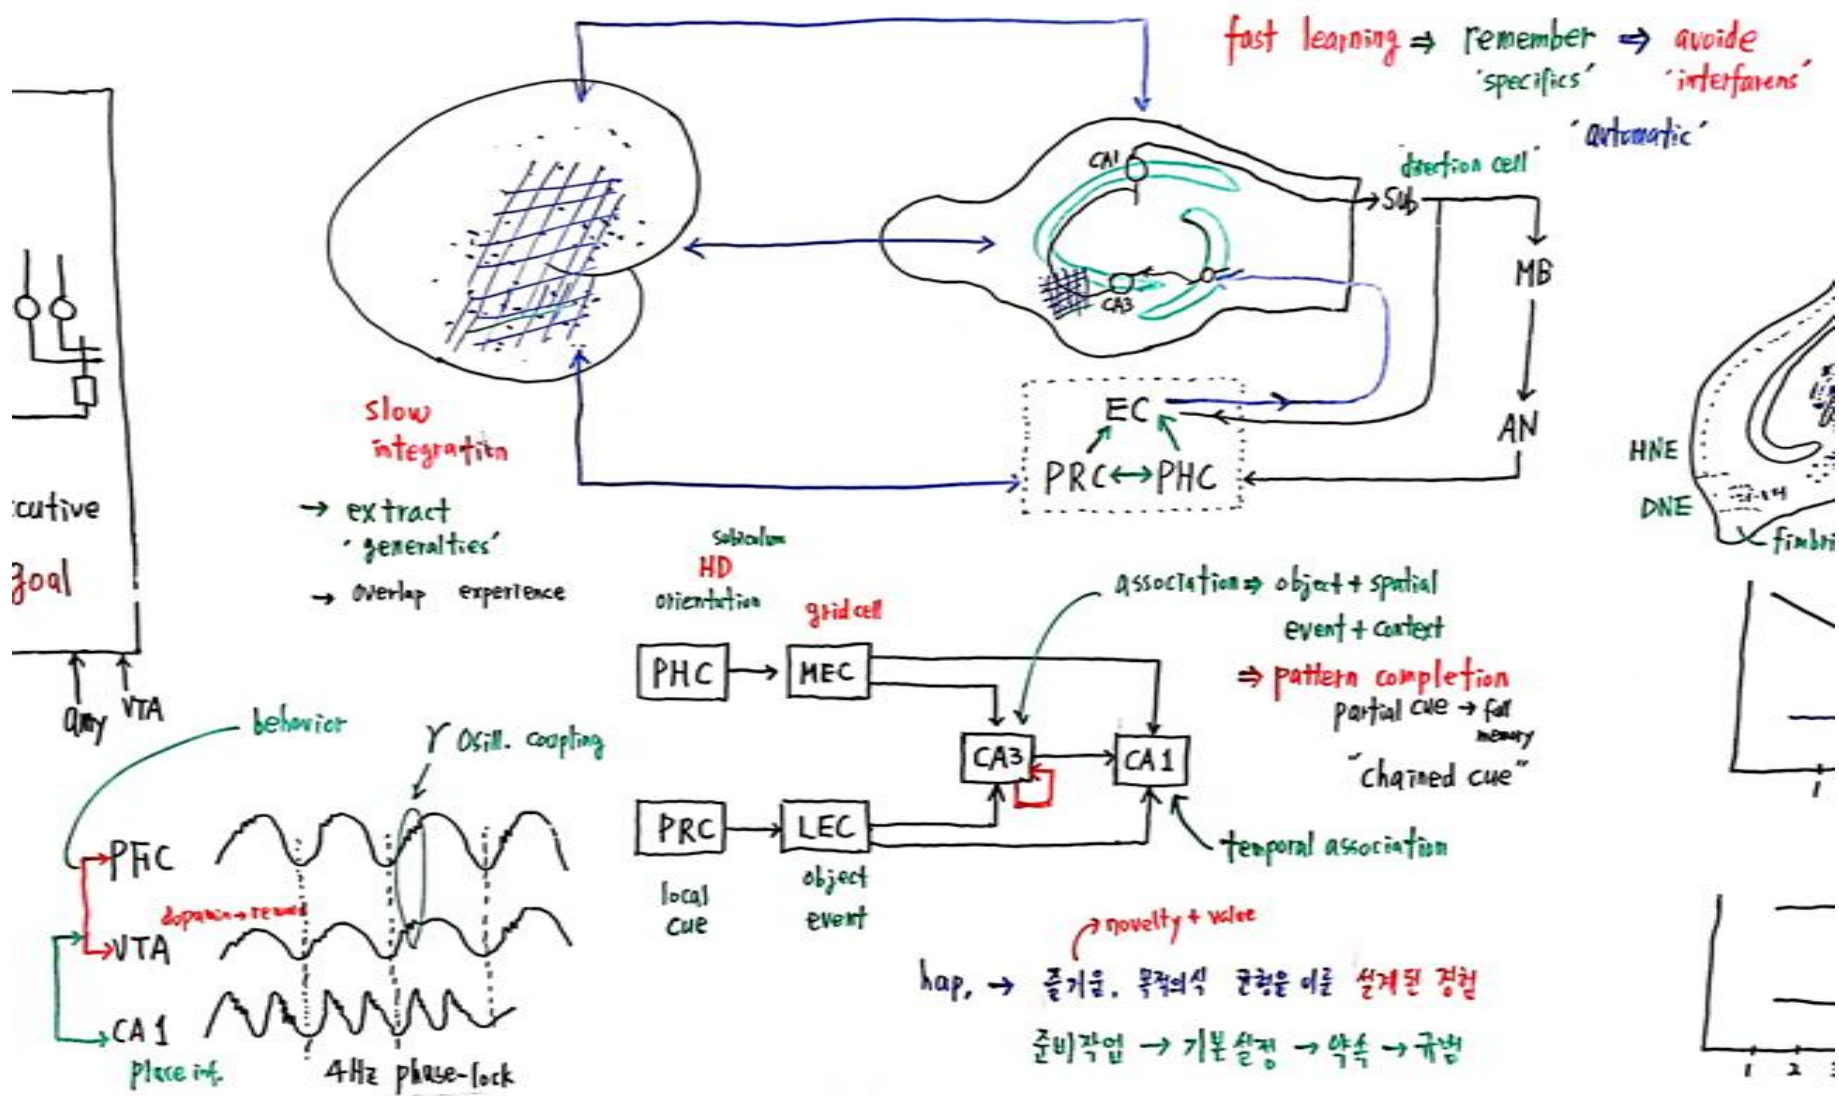 fast learning ⇒ remember ⇒ avoide
'specifics' 'interfarens'
'automatic'
direction cell'
CA1
Sub
MB
CA3
EC
AN
PRC ↔ PHC
HNE
DNE
slow
integration
→ extract
'generalties'
→ overlap experience
cutive
goal
amy VTA
subiculum
HD
orientation
grid cell
PHC → MEC
CA3 → CA1
PRC → LEC
local
cue
object
event
association ⇒ object + spatial
event + context
⇒ pattern completion
partial cue → full
memory
"chained cue"
temporal association
behavior
γ Osill. coupling
PFC
dopamin → reward
VTA
CA1
place inf.
4Hz phase-lock
novelty + value
hap, → 즐거움, 목적의식 균형을 이룬 설계된 경험
준비작업 → 기본설정 → 약속 → 규범
1
1 2 3